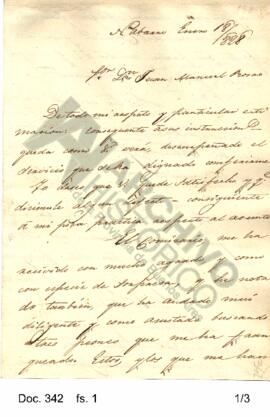 Enero 18/828
Sor Dn Juan Manuel Rosas
De todo mi respeto y particular esti
macion: consiguiente á sus instrucciones
queda como V. verá, desempeñado el
servicio que se ha dignado conferirme
Yo deseo que V. quede satisfecho y qe
disimule algun defecto consiguiente
á mi poca practica respecto al asunto
El Comisario me ha
recivido con mucho agrado y como
con especie de
do tambien, que ha andado muy
diligente y como asustado buscando
otros peones que me ha fran
queado. Estos, y los que me han
ARCHIVO
HISTORICO
Doc. 342 fs. 1
1/3